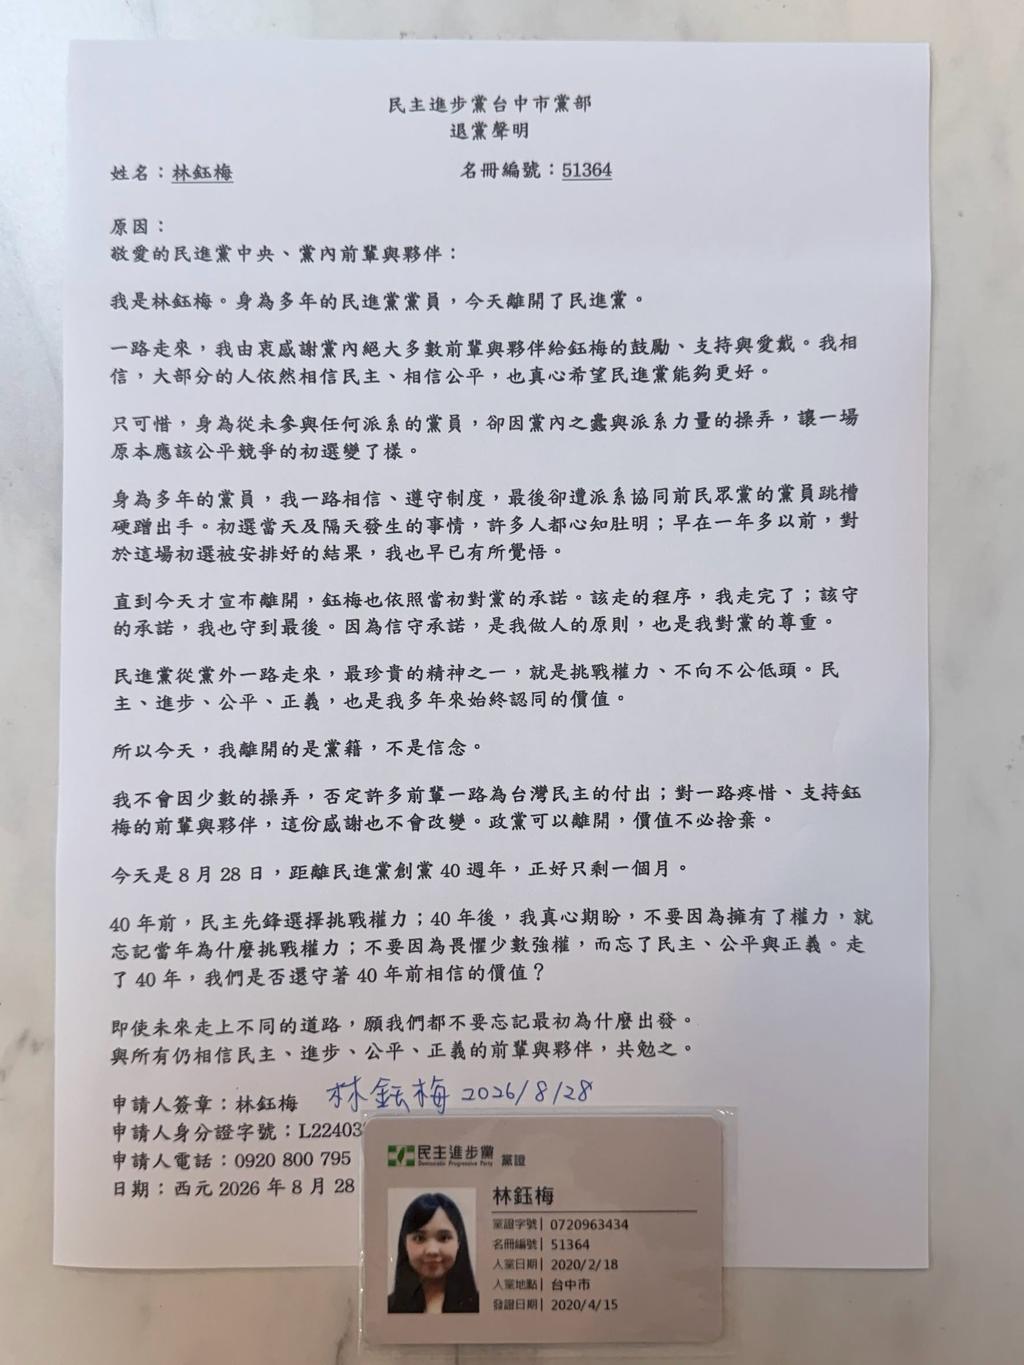 民主進步黨台中市黨部
退黨聲明
姓名：林鈺梅 名冊編號：51364
原因：
敬愛的民進黨中央、黨內前輩與夥伴：
我是林鈺梅。身為多年的民進黨黨員，今天離開了民進黨。
一路走來，我由衷感謝黨內絕大多數前輩與夥伴給鈺梅的鼓勵、支持與愛戴。我相
信，大部分的人依然相信民主、相信公平，也真心希望民進黨能夠更好。
只可惜，身為從未參與任何派系的黨員，卻因黨內之蠹與派系力量的操弄，讓一場
原本應該公平競爭的初選變了樣。
身為多年的黨員，我一路相信、遵守制度，最後卻遭派系協同前民眾黨的黨員跳槽
硬蹭出手。初選當天及隔天發生的事情，許多人都心知肚明；早在一年多以前，對
於這場初選被安排好的結果，我也早已有所覺悟。
直到今天才宣布離開，鈺梅也依照當初對黨的承諾。該走的程序，我走完了；該守
的承諾，我也守到最後。因為信守承諾，是我做人的原則，也是我對黨的尊重。
民進黨從黨外一路走來，最珍貴的精神之一，就是挑戰權力、不向不公低頭。民
主、進步、公平、正義，也是我多年來始終認同的價值。
所以今天，我離開的是黨籍，不是信念。
我不會因少數的操弄，否定許多前輩一路為台灣民主的付出；對一路疼惜、支持鈺
梅的前輩與夥伴，這份感謝也不會改變。政黨可以離開，價值不必捨棄。
今天是 8 月 28 日，距離民進黨創黨 40 週年，正好只剩一個月。
40 年前，民主先鋒選擇挑戰權力；40 年後，我真心期盼，不要因為擁有了權力，就
忘記當年為什麼挑戰權力；不要因為畏懼少數強權，而忘了民主、公平與正義。走
了 40 年，我們是否還守著 40 年前相信的價值？
即使未來走上不同的道路，願我們都不要忘記最初為什麼出發。
與所有仍相信民主、進步、公平、正義的前輩與夥伴，共勉之。
申請人簽章：林鈺梅 林鈺梅 2026/8/28
申請人身分證字號：L22403
申請人電話：0920 800 795
日期：西元 2026 年 8 月 28
民主進步黨 黨證
Democratic Progressive Party
林鈺梅
黨證字號| 0720963434
名冊編號| 51364
入黨日期| 2020/2/18
入黨地點| 台中市
發證日期| 2020/4/15